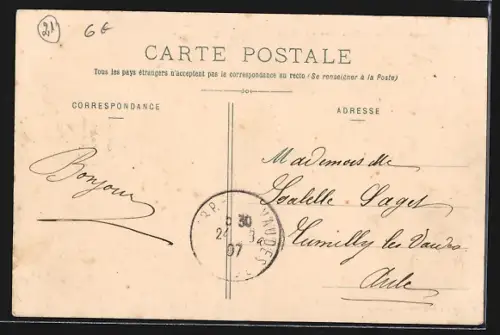 21
6€
CARTE POSTALE
Tous les pays étrangers n'acceptent pas la correspondance au recto (Se renseigner à la Poste)
CORRESPONDANCE
ADRESSE
Bonjour
Mademoiselle
Isabelle Saget
Rumilly les Vaudes
Aube
VAUDES
30
24
07